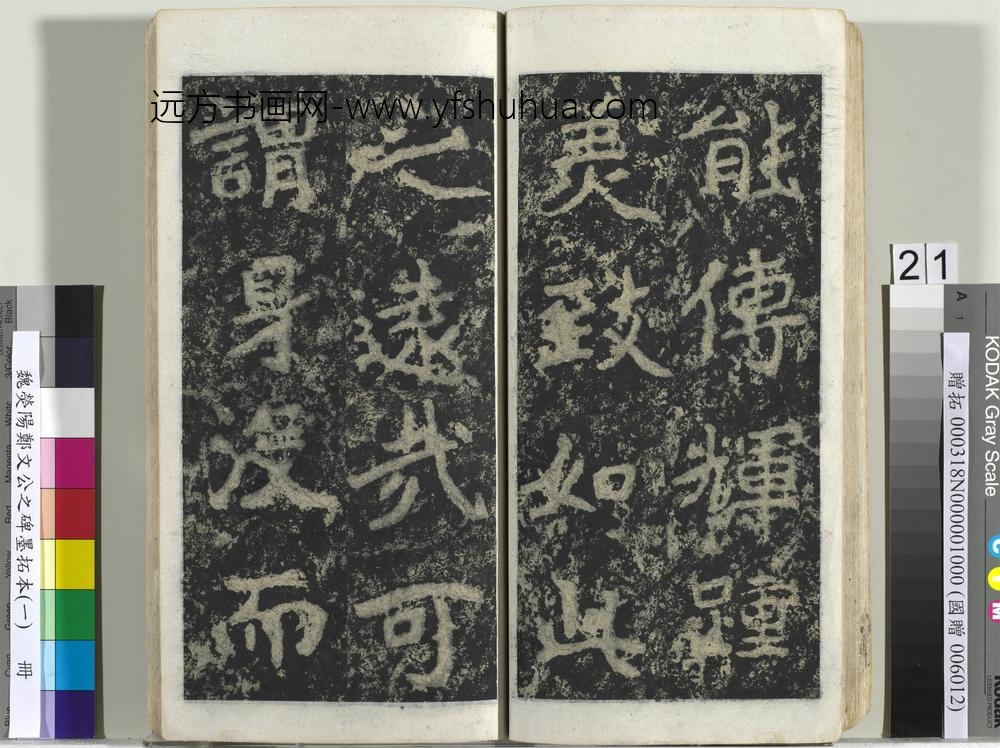 远方书画网-www.yfshuhua.com
能傳輝踵
美致如此
之遠哉可
謂身沒而
21
A 1
KODAK Gray Scale
C Y M
LICENSED PRODUCT
贈拓 000318N000001000 (國贈 006012)
魏滎陽鄭文公之碑墨拓本(一) 冊
Black
3/Color
White
Magenta
Red
Yellow
Green
Cyan
Blue